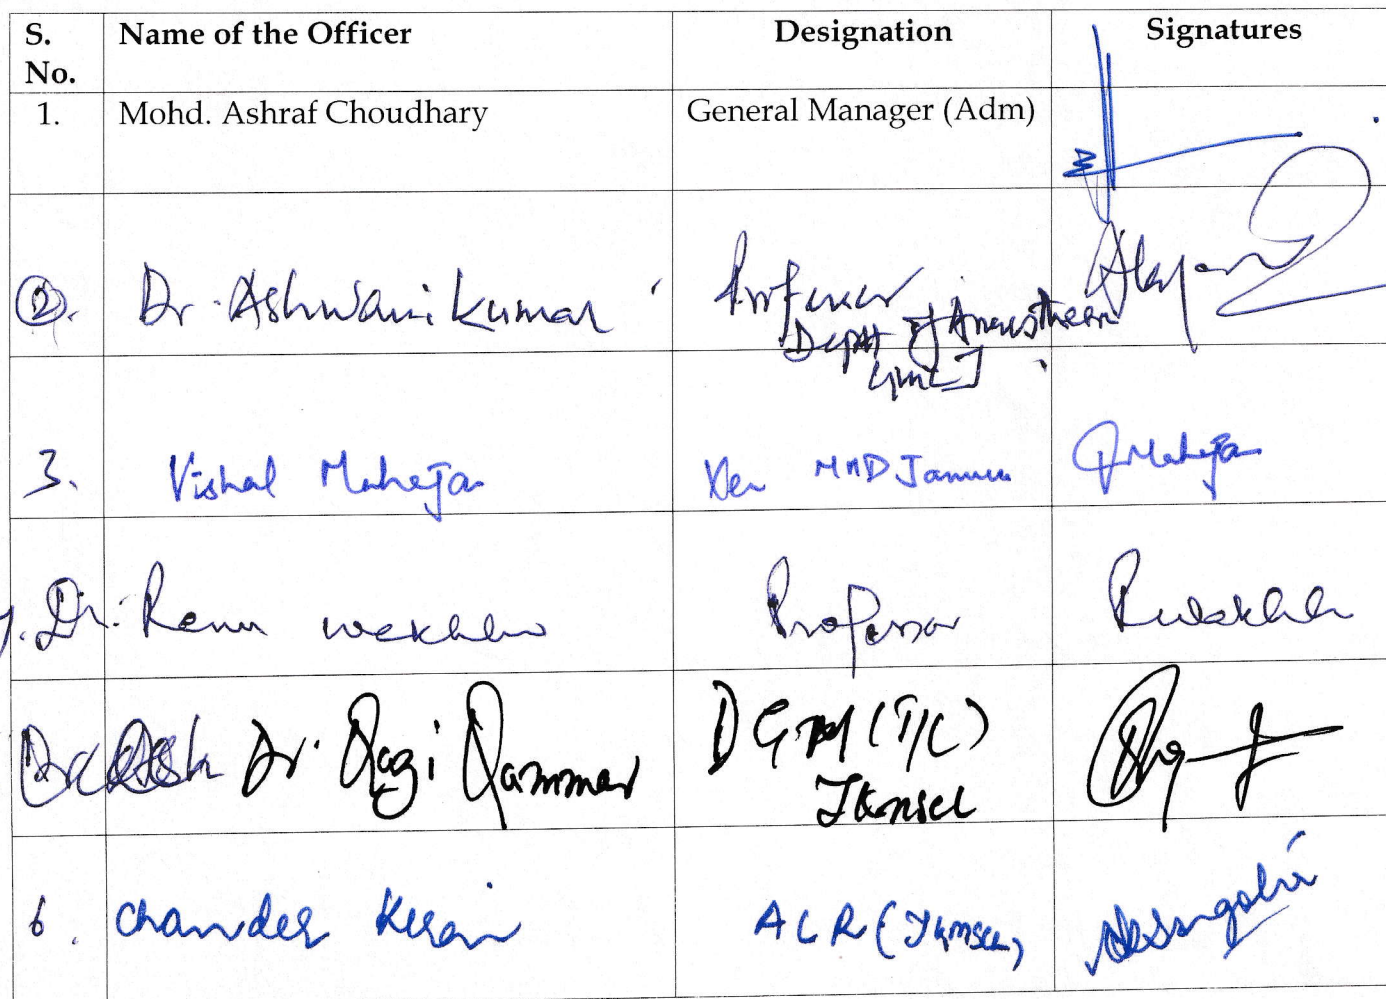 S. No. Name of the Officer Designation Signatures
1. Mohd. Ashraf Choudhary General Manager (Adm)
2. Dr. Ashwani Kumar Professor
Deptt of
GMC J
3. Vishal Mahajan MMD Jammu
Dr. Renu Wakhlu Professor
Dr. Qazi Qammar DGM (T/C)
JKMSCL
6. Chander Kiran ALR (JKMSCL)